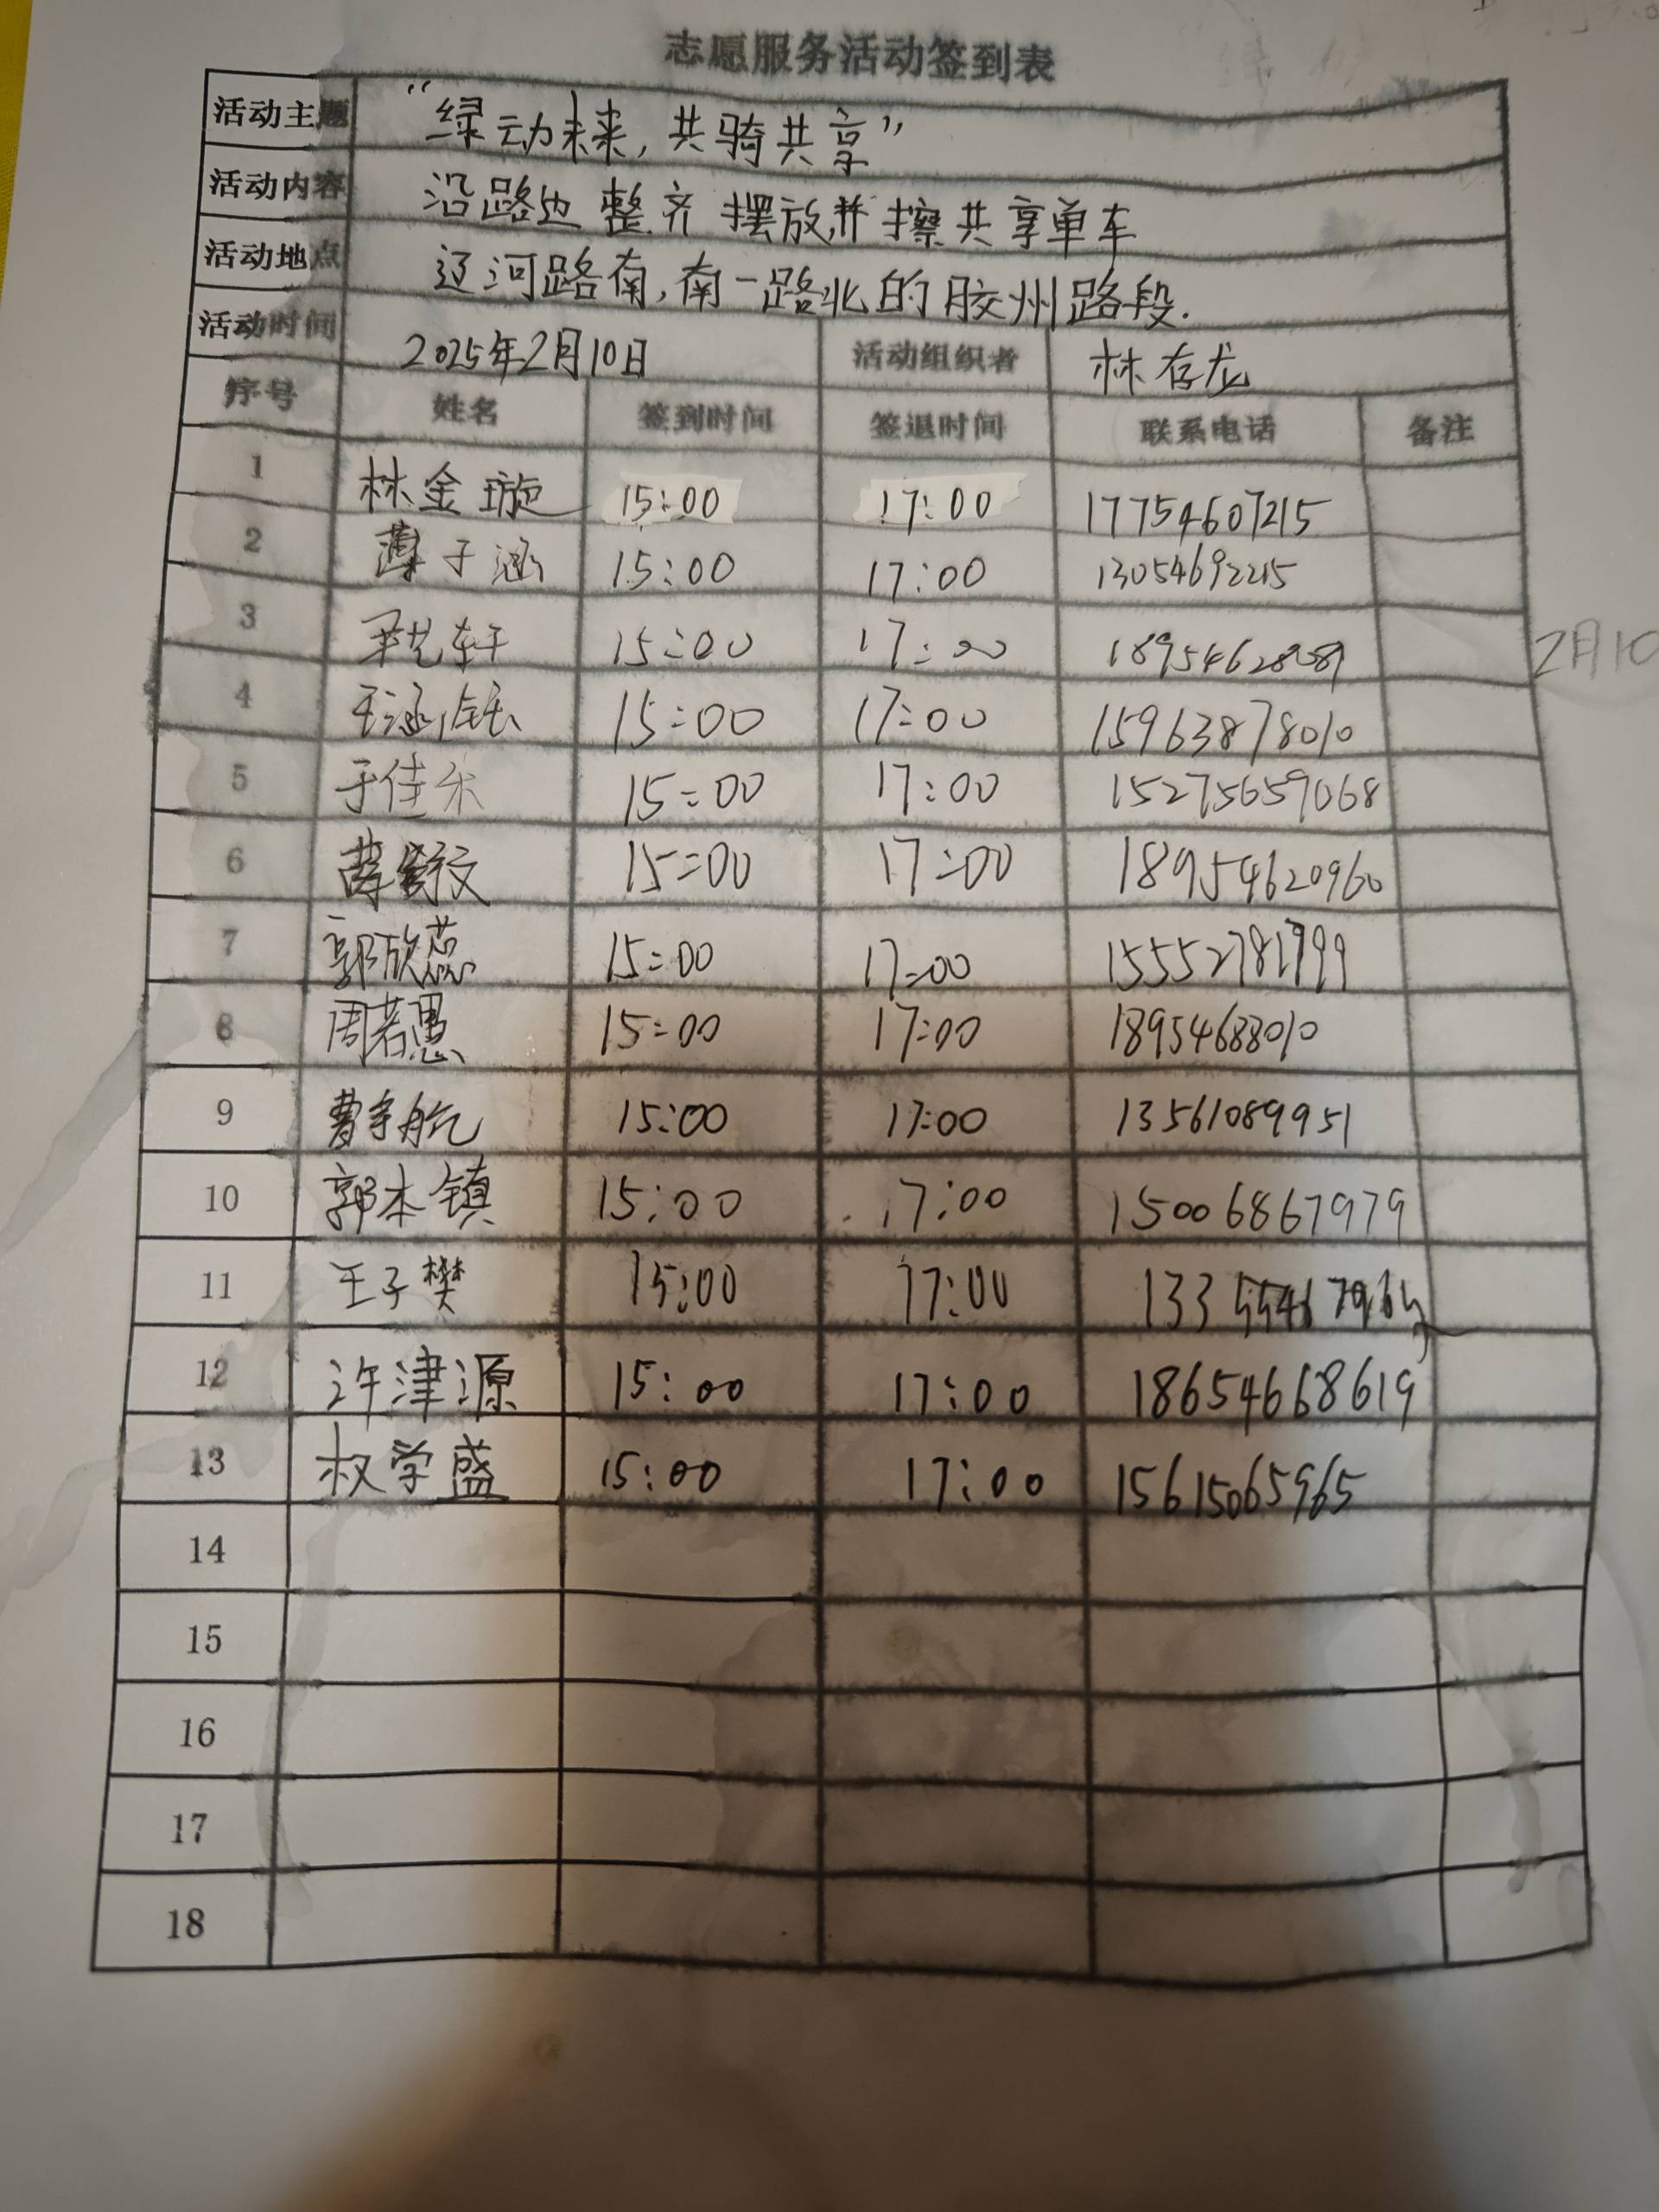 志愿服务活动签到表
活动主题 “绿动未来,共骑共享”
活动内容 沿路边整齐摆放并擦共享单车
活动地点 辽河路南,南一路北的胶州路段.
活动时间 2025年2月10日 活动组织者 林存龙
序号 姓名 签到时间 签退时间 联系电话 备注
1 林金璇 15:00 17:00 17754607215
2 薄子涵 15:00 17:00 13054692215
3 15:00 17:00
2月10
4 15:00 17:00 15963878010
5 于佳禾 15:00 17:00 15275659068
6 15:00 17:00 18954620960
7 郭欣蕊 15:00 17:00 15552781999
8 周若愚 15:00 17:00 18954688010
9 曹宇航 15:00 17:00 13561089951
10 郭本镇 15:00 17:00 15006867979
11 王子樊 15:00 17:00
12 许津源 15:00 17:00 18654668619
13 权学盛 15:00 17:00 15615065965
14
15
16
17
18